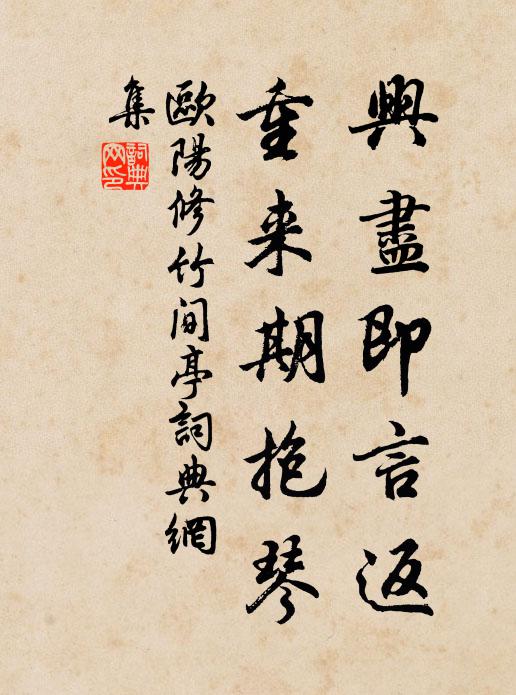 興盡即言返
重来期抱琴
歐陽修竹間亭詞典網
集
詞典網印